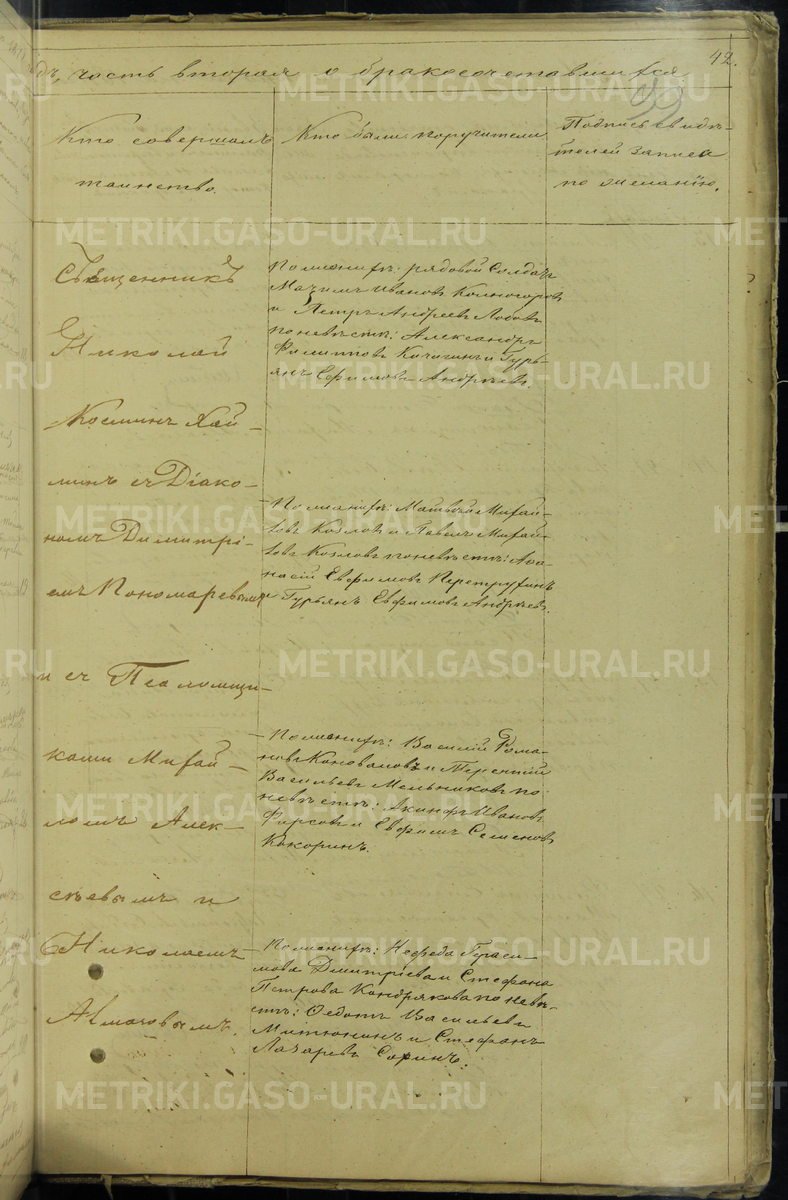 42.
дъ, часть вторая о бракосочетавшихся
99
Кто совершалъ
таинство.
Кто были поручители
Подпись свидѣ-
телей записи
по желанію.
Священникъ
Николай
Космин
съ Діако-
номъ Димитрі-
емъ Пономаревымъ
и съ Псаломщи-
ками Михай-
ломъ Алек-
сѣевымъ и
Николаемъ
По женихѣ: рядовой Солдатъ
Иванов
и Петръ Андреевъ Лобовъ
по невѣстѣ: Александръ
Филипповъ и Гурь-
янъ Ефимовъ Андреевъ.
По женихѣ: Матвѣй Михай-
ловъ Козловъ и Павелъ Михай-
ловъ Козловъ по невѣстѣ: Аѳа-
насій Евфимовъ Перетрухинъ
и Гурьянъ Евфимовъ Андреевъ.
По женихѣ: Василій Рома-
новъ Коноваловъ и Терентій
Васильевъ Мельниковъ по
невѣстѣ: Акинфъ Ивановъ
Фирсовъ и Евфимъ Семеновъ
Кокоринъ.
По женихѣ: Нефеда Гераси-
мова Дмитріева и Стефана
Петрова Кондрякова по невѣ-
стѣ: Федотъ Васильевъ
Митюнинъ и Стефанъ
Лазаревъ Соринъ.
METRIKI.GASO-URAL.RU